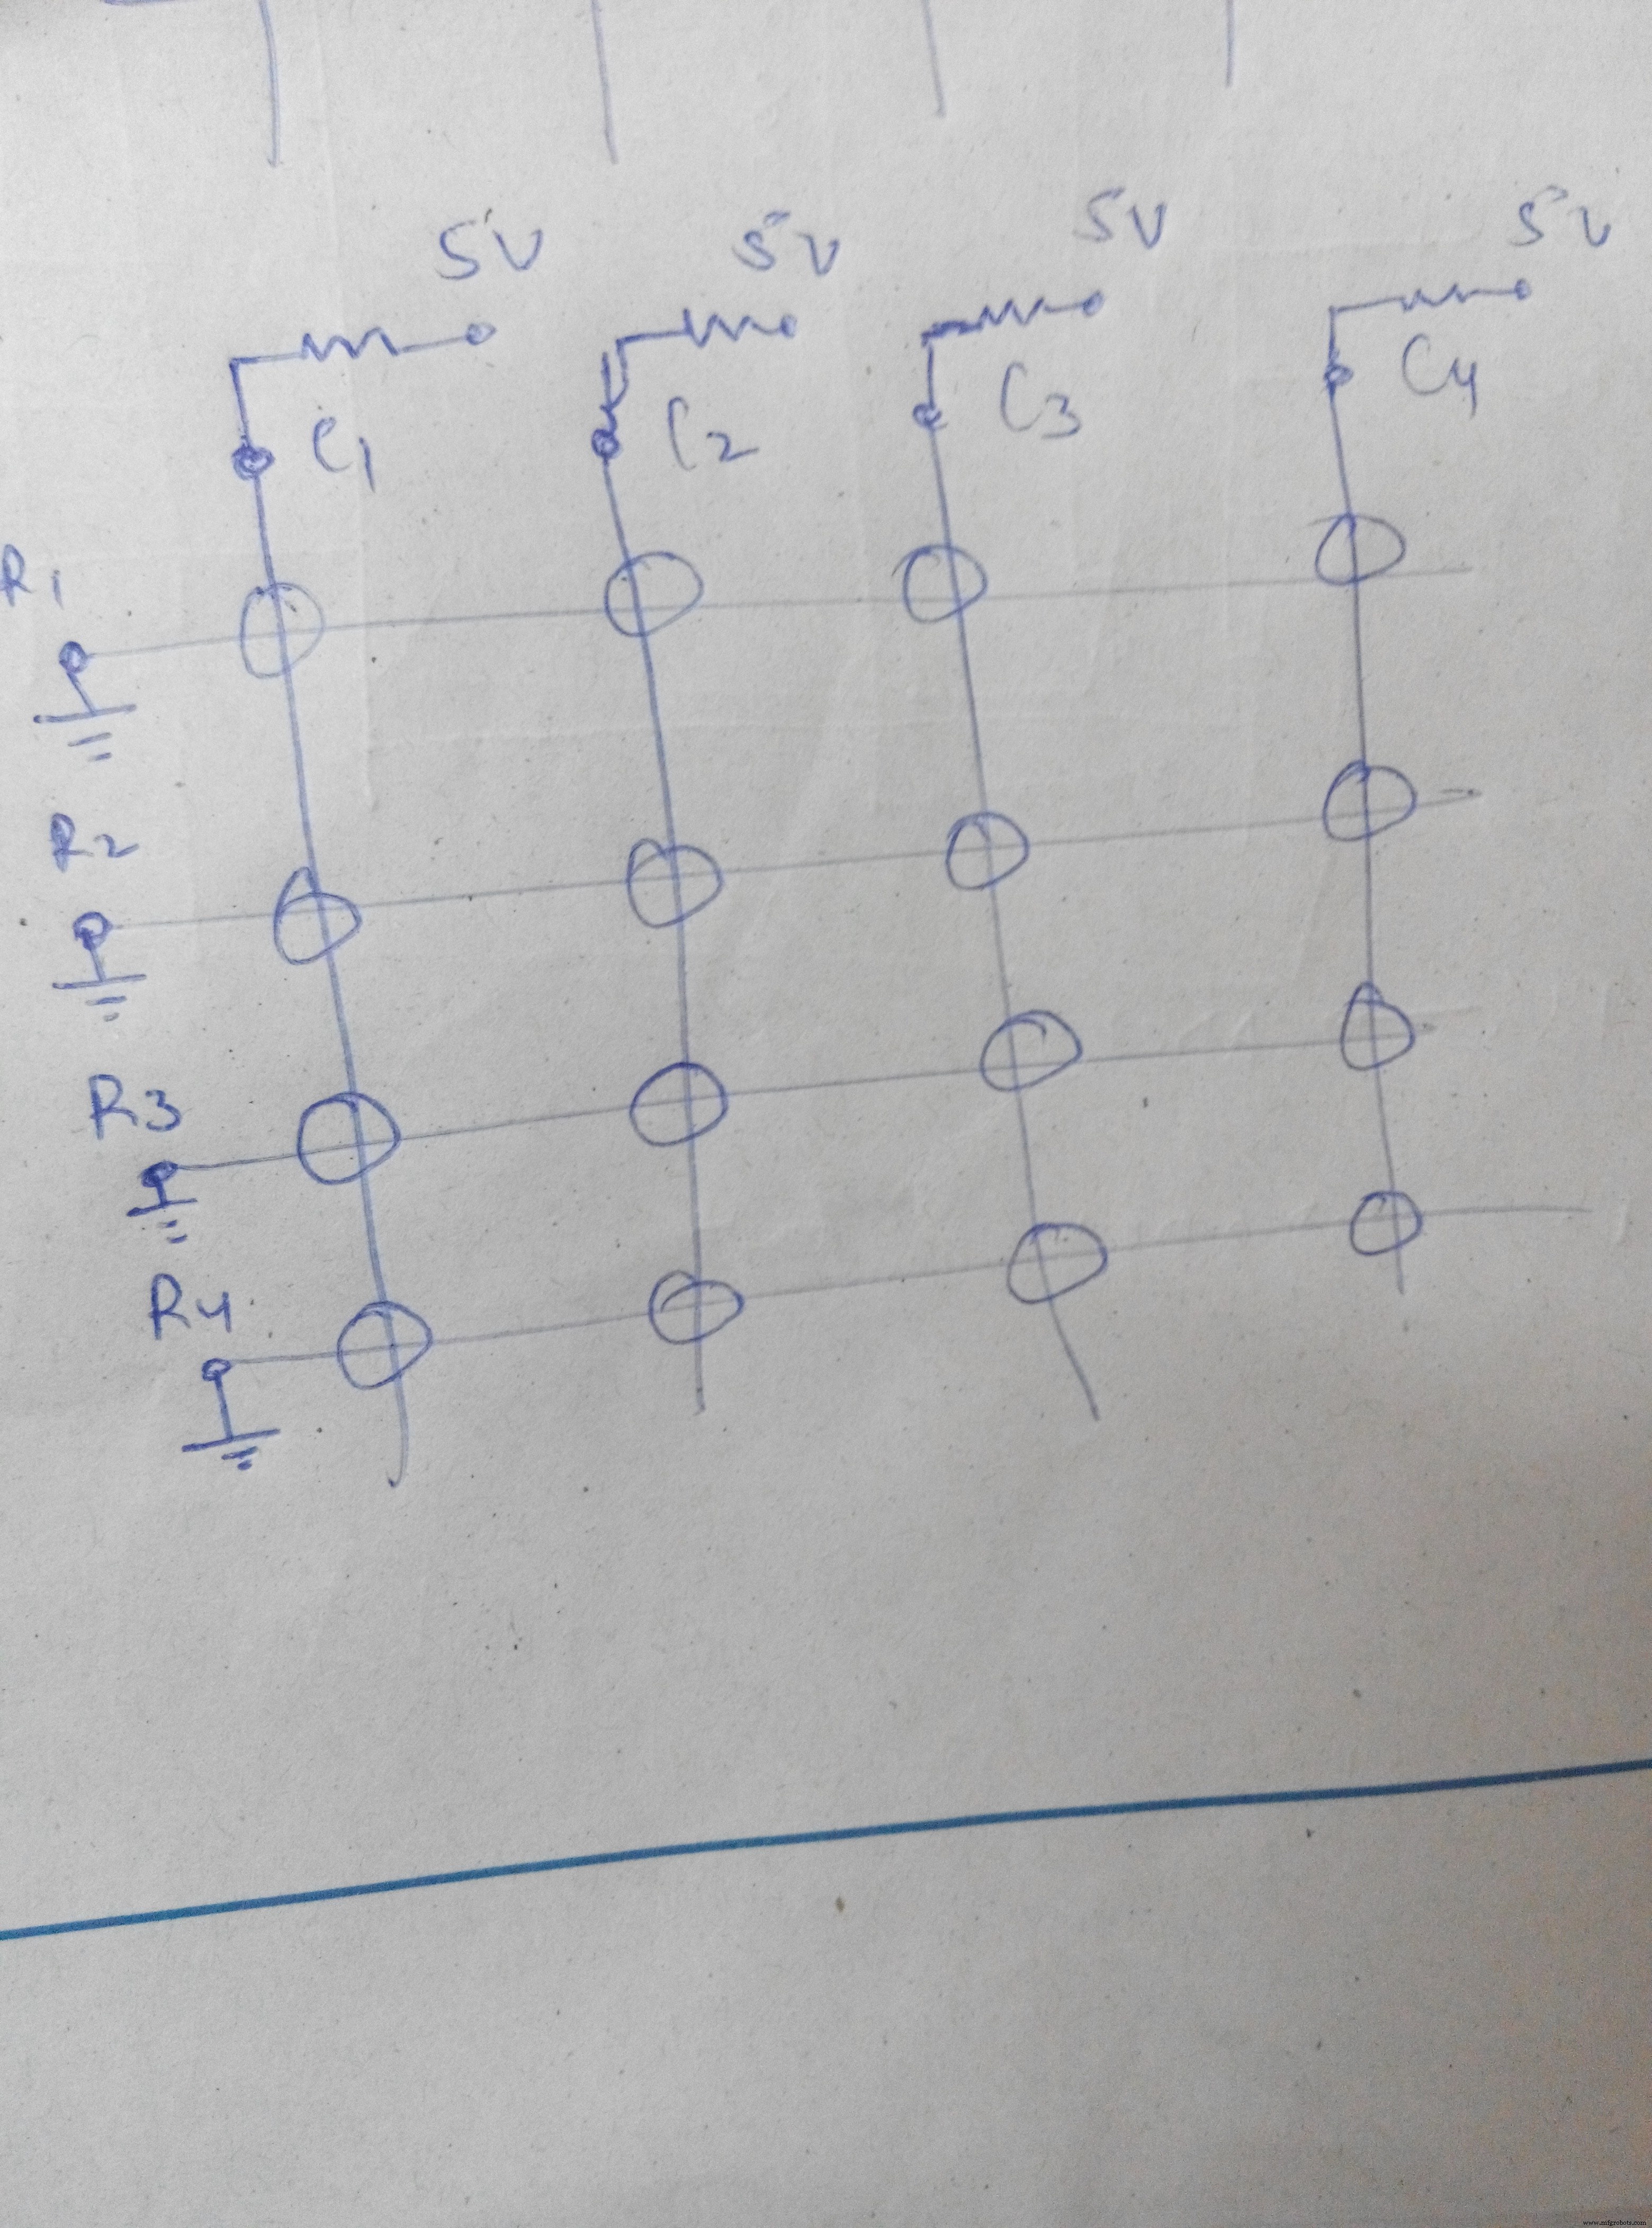 5V 5V 5V 5V
C1 C2 C3 C4
R1
R2
R3
R4
www.mfgrobots.com